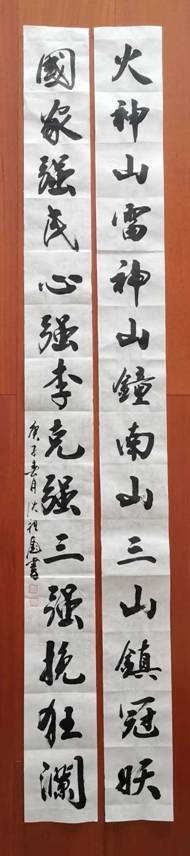 火神山雷神山鐘南山三山鎮冠妖
國家强民心强李克强三强挽狂瀾
庚子春月沈祖惠書